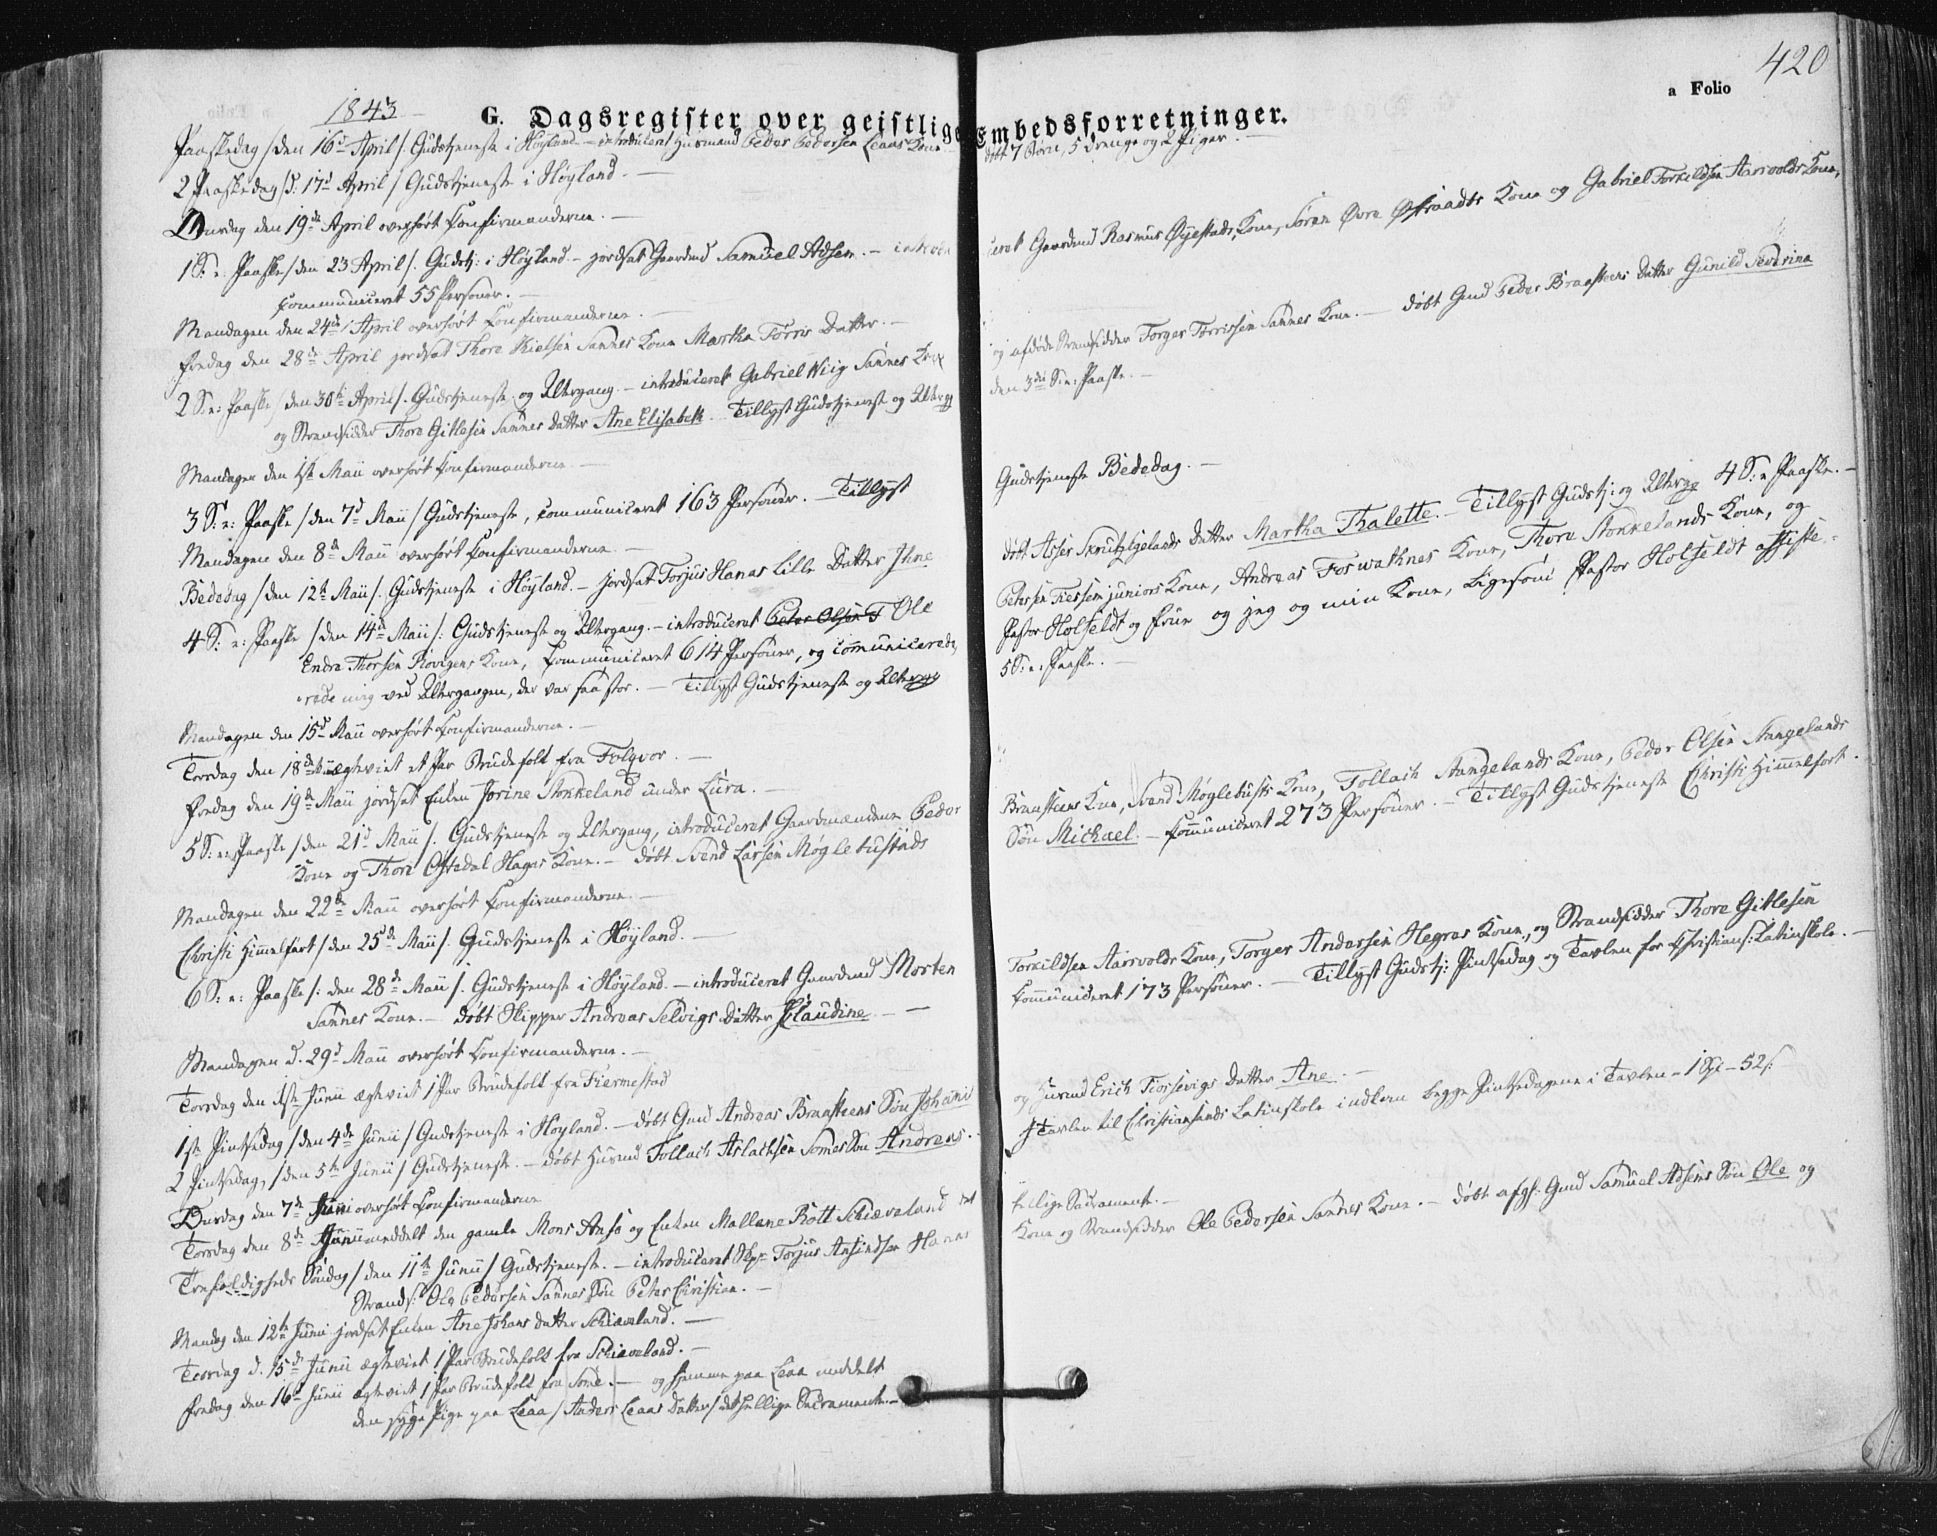 420
a Folio
1843
G. Dagsregister over geistlige Embedsforretninger.
Paaskedag /den 16d April/. Gudstjeneste i Høyland. – introduceret Husmand Peder Pedersen Leaas Kone – døbt 7 Børn, 5 drenge og 2 Piger. –
2 Paaskedag /d: 17d April/ Gudstjeneste i Høyland. –
Onsdag den 19de April overhørt Confirmanderne. –
1 S: e: Paaske /den 23 April/. Gudstj: i Høyland – jordsat Gaardmd Samuel Adsen. – introdu
ceret Gaardmd Rasmus Øyestads Kone, Søren Øvre Østraadts Kone og Gabriel Torkildsen Aarsvolds Kone,
Communiceret 55 Personer. –
Mandagen den 24de April overhørt Confirmanderne. –
Fredag den 28de April jordsat Thore Nielsen Sannes Kone Martha Tørris Datter. –
2 S: e: Paaske /den 30te April/. Gudstjeneste og Altergang. – introduceret Gabriel Wiig Sannes Kone
og afdøde Strandsidder Torger Tørrissen Sannes Kone. – døbt Gmd Peder Braasteens Datter Gunild Severina
og Strandsidder Thore Gitlesen Sannes Datter Ane Elisabeth. Tillyst Gudstjeneste og Alterg
den 3die S: e: Paaske. –
Mandagen den 1ste Maii overhørt Confirmanderne. –
3 S: e: Paaske /den 7d Maii/ Gudstjeneste, Communiceret 163 Personer. – Tillyst
Gudstjeneste Bededag. –
Mandagen den 8de Maii overhørt Confirmanderne. –
Bededag /den 12te Maii/. Gudstjeneste i Høyland. – jordsat Torjus Hanas lille Datter Ihne
døbt Asser Skrutzlgelands Datter Martha Thalette. – Tillyst Gudstj: og Alterg 4 S: e Paaske. –
4 S: e: Paaske /den 14de Maii/: Gudstjeneste og Altergang. – introduceret Peder Olsen T Ole
Petersen Tiessem juniors Kone, Andreas Foswatknes Kone, Thore Stokkelands Kone, og
Endre Thorsen Kone, Communiceret 614 Personer, og communicerede
Pastor Holfeldt og Frue og jeg og min Kone, Ligesom Pastor Holfeldt assiste-
rede mig ved Altergangen, der var saa stor. – Tillyst Gudstjeneste og Alterg
5 S: e: Paaske. –
Mandagen den 15d Maii overhørt Confirmanderne. –
Torsdag den 18de Maii ægteviet et Par Brudefolk fra Folgvor. –
Fredag den 19de Maii jordsat Enken Jorine Stokkeland under Lura. –
5 S: e: Paaske /den 21d Maii/. Gudstjeneste og Altergang, introduceret Gaardmændene Peder
Braasteens Kone, Svend Møglebusts Kone, Tollach Stangelands Kone, Peder Olsen Stangelands
Kone og Thore Opstedal Hagas Kone. – døbt Svend Larsen Møglebustads
Søn Michael. – Communiceret 273 Personer. – Tillyst Gudstjeneste Christi Himmelfart.
Mandagen den 22de Maii overhørt Confirmanderne. –
Christi Himmelfart /den 25de Maii/. Gudstjeneste i Høyland. –
6 S: e: Paaske /: den 28de Maii/. Gudstjeneste i Høyland. – introduceret Gaardmd Morten
Torkildsen Aarsvolds Kone, Torger Andersen Hegras Kone, og Strandsidder Thore Gitlesen
Sannes Kone. – døbt Skipper Andreas Selvigs Datter Klaudine. – –
Communiceret 173 Personer. – Tillyst Gudstj: Pintsedag og Tavlen for Christians: Latinskole. –
Mandagen d. 29d Maii overhørt Confirmanderne. –
Torsdag den 1ste Junii ægteviet 1 Par Brudefolk fra
1ste Pintsedag /den 4de Junii/ Gudstjeneste i Høyland. – døbt Gmd Andreas Braasteens Søn Johannes
og Husmd Erich Tiorsevigs Datter Ane. –
2 Pintsedag, /den 5te Junii/ Gudstjeneste. – døbt Husmd Tollach Aslachsen Somes Søn Andreas. –
I Tavlen til Christiansands Latinskole indkom begge Pintsedagene i Tavlen – 1 Sp – 52 s.
Onsdag den 7de Junii overhørt Confirmanderne
Torsdag den 8de Junii meddelt den gamle Mons Anso og Enken Mallene Rott Schiæveland det
hellige Sacramente. –
Trefoldigheds Søndag /den 11te Junii/ Gudstjeneste. – introduceret Torjus Hanas
Kone og Strandsidder Ole Pedersen Sandnes Kone. – døbt afgl: Gmd Samuel Adsens Søn Ole og
Strands: Ole Pedersen Sannes Søn Peter Christian. –
Mandag den 12te Junii jordsat Enken Ane Johans Datter Schiæveland. –
Torsdag d. 15de Junii ægteviet 1 Par Brudefolk fra Schiæveland. –
Fredag den 16de Junii ægteviet 1 Par Brudefolk fra Some. – og hjemme paa Leaa meddelt
den syge Pige paa Leaa /Anders Leaas Datter/ det hellige Sacramente. –